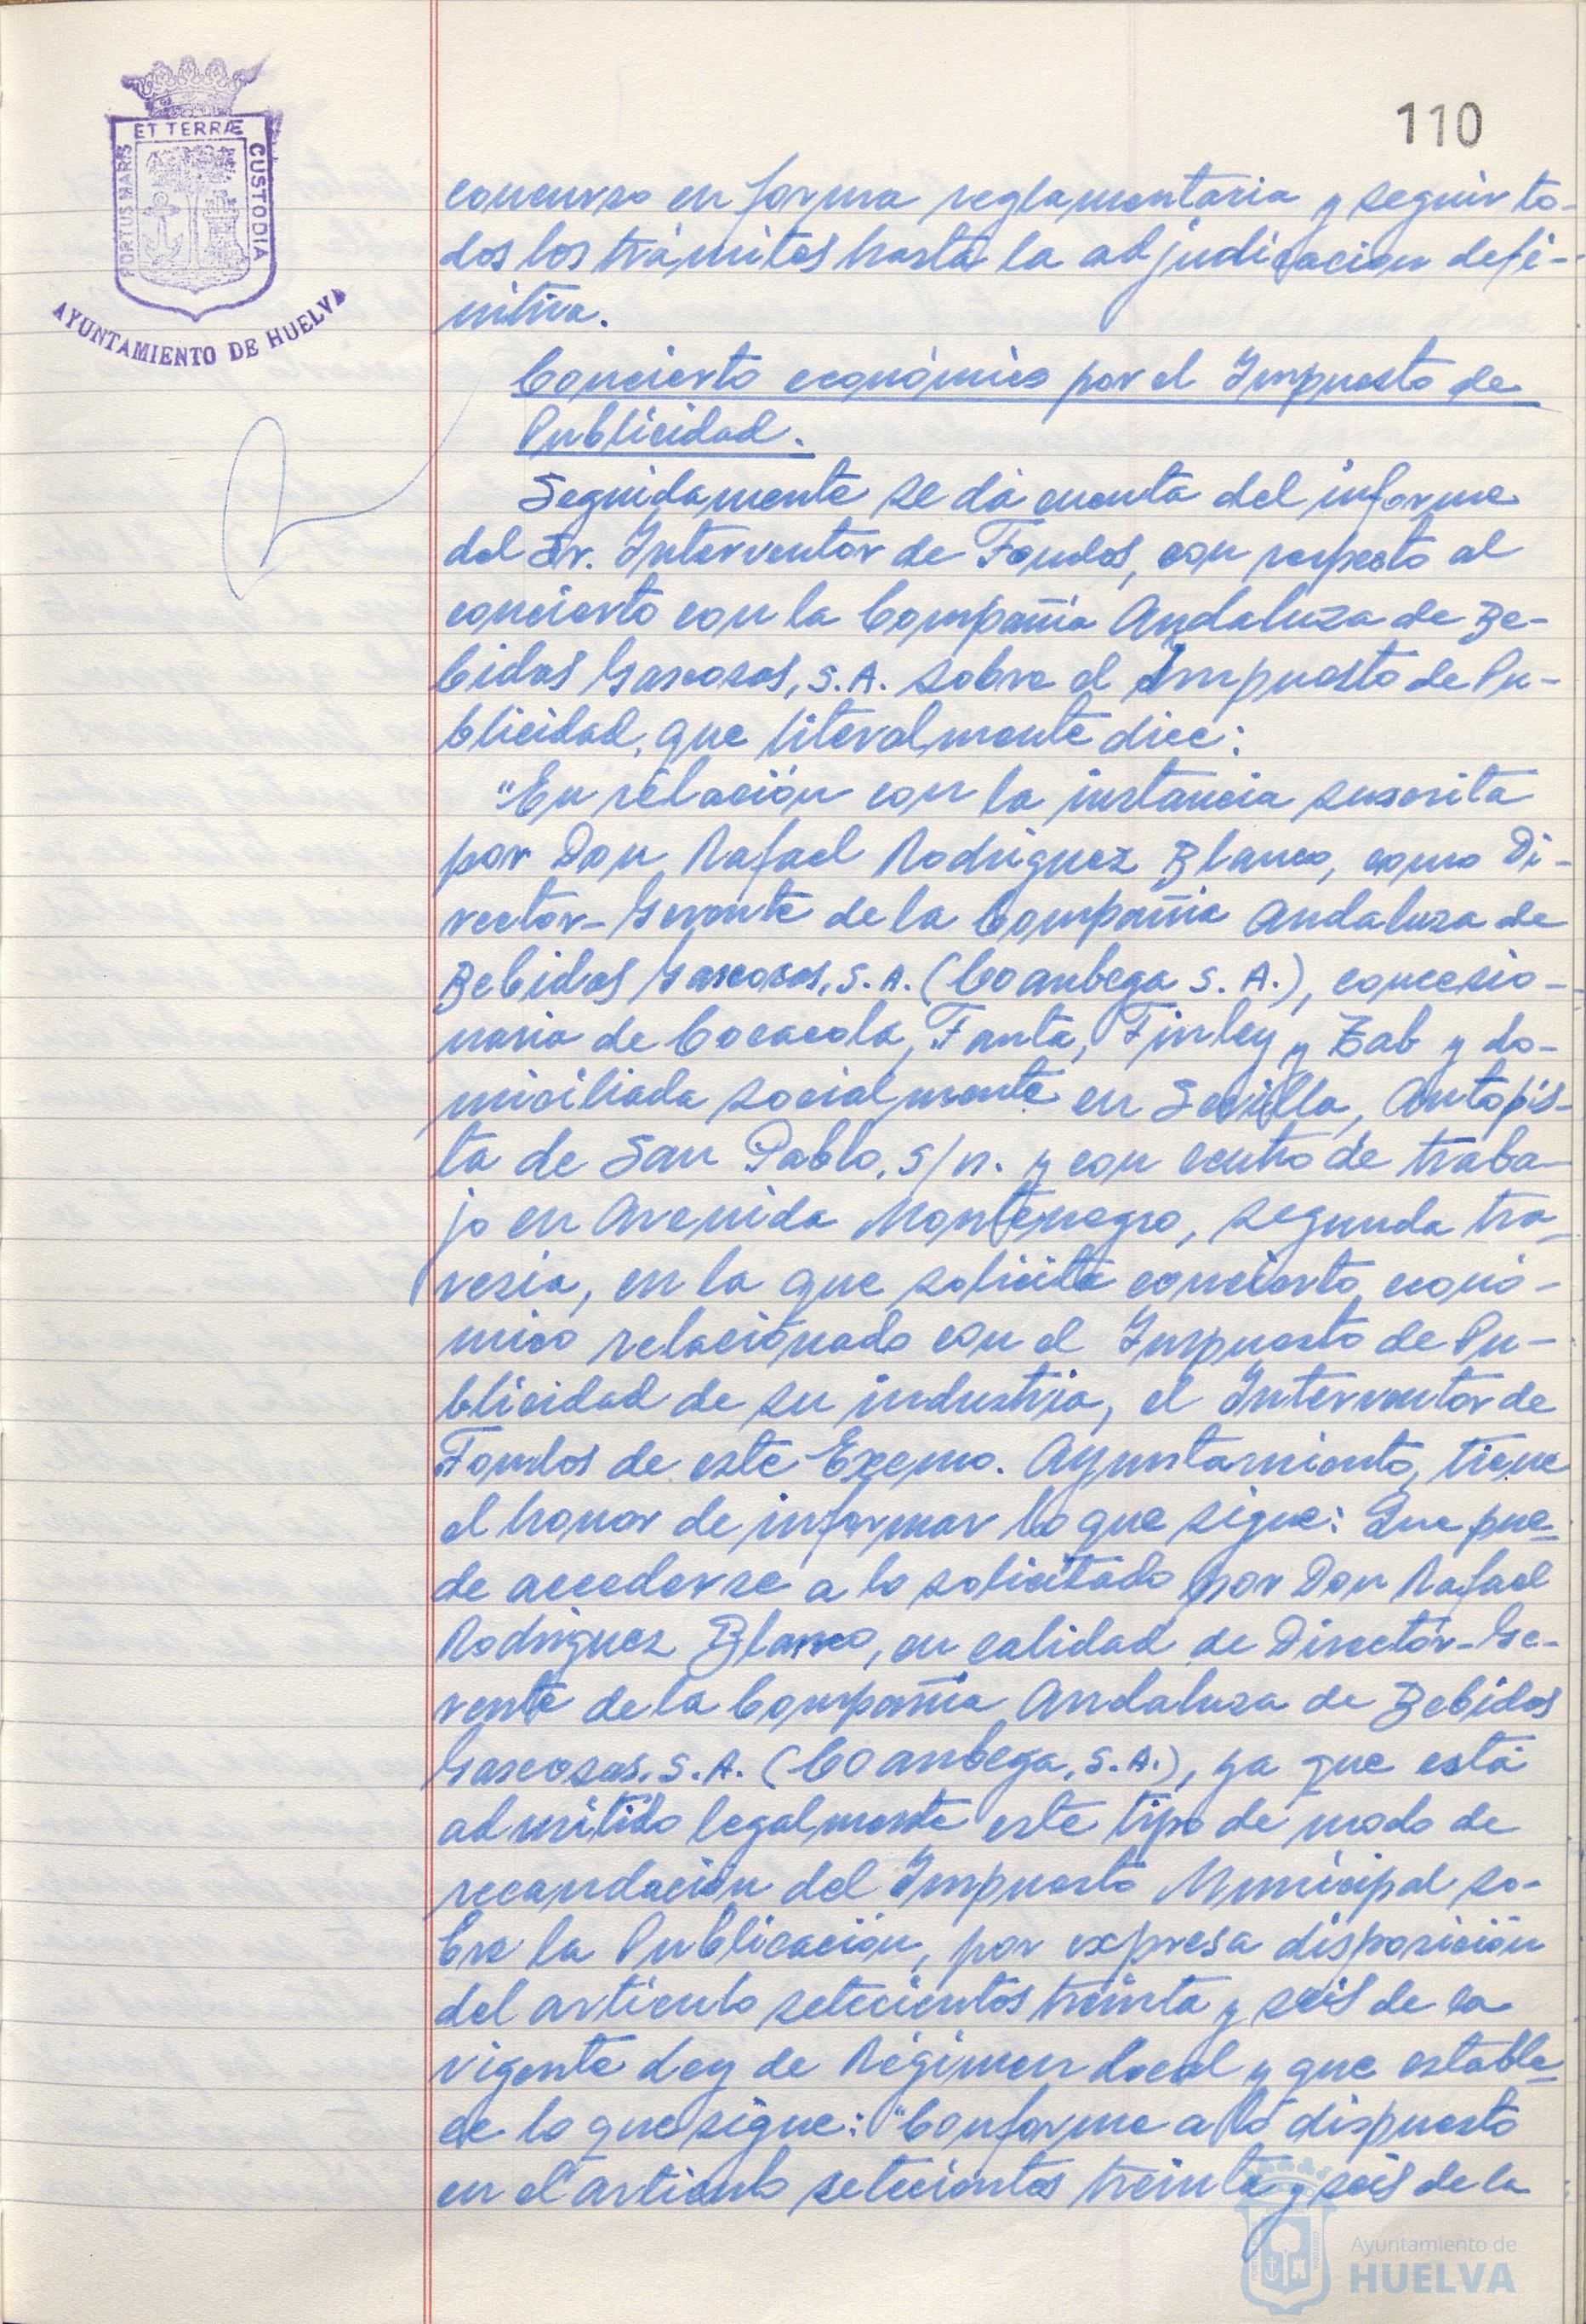 110
ET TERRÆ
PORTUS MARIS
CUSTODIA
AYUNTAMIENTO DE HUELVA
concurso en forma reglamentaria y seguir to-
dos los trámites hasta la adjudicación defi-
nitiva.
Concierto económico por el Impuesto de
Publicidad.
Seguidamente se dá cuenta del informe
del Sr. Interventor de Fondos, con respecto al
concierto con la Compañia Andaluza de Be-
bidas Gaseosas, S.A. sobre el Impuesto de Pu-
blicidad, que literalmente dice:
"En relación con la instancia suscrita
por Don Rafael Rodriguez Blanco, como Di-
rector-Gerente de la Compañia Andaluza de
Bebidas Gaseosas, S.A. (Coanbega S.A.), concesio-
naria de Cocacola, Fanta, Finley y Zab y do-
miciliada socialmente en Sevilla, Autopis-
ta de San Pablo, s/n. y con centro de traba-
jo en Avenida Montenegro, segunda tra-
vesia, en la que solicita concierto econó-
mico relacionado con el Impuesto de Pu-
blicidad de su industria, el Interventor de
Fondos de este Excmo. Ayuntamiento, tiene
el honor de informar lo que sigue: Que pue-
de accederse a lo solicitado por Don Rafael
Rodriguez Blanco, en calidad de Director-Ge-
rente de la Compañia Andaluza de Bebidas
Gaseosas, S.A. (Coanbega, S.A.), ya que está
admitido legalmente este tipo de modo de
recaudación del Impuesto Municipal so-
bre la Publicación, por expresa disposición
del articulo setecientos treinta y seis de la
vigente Ley de Régimen Local y que estable-
ce lo que sigue: "Conforme a lo dispuesto
en el articulo setecientos treinta y seis de la
Ayuntamiento de
HUELVA